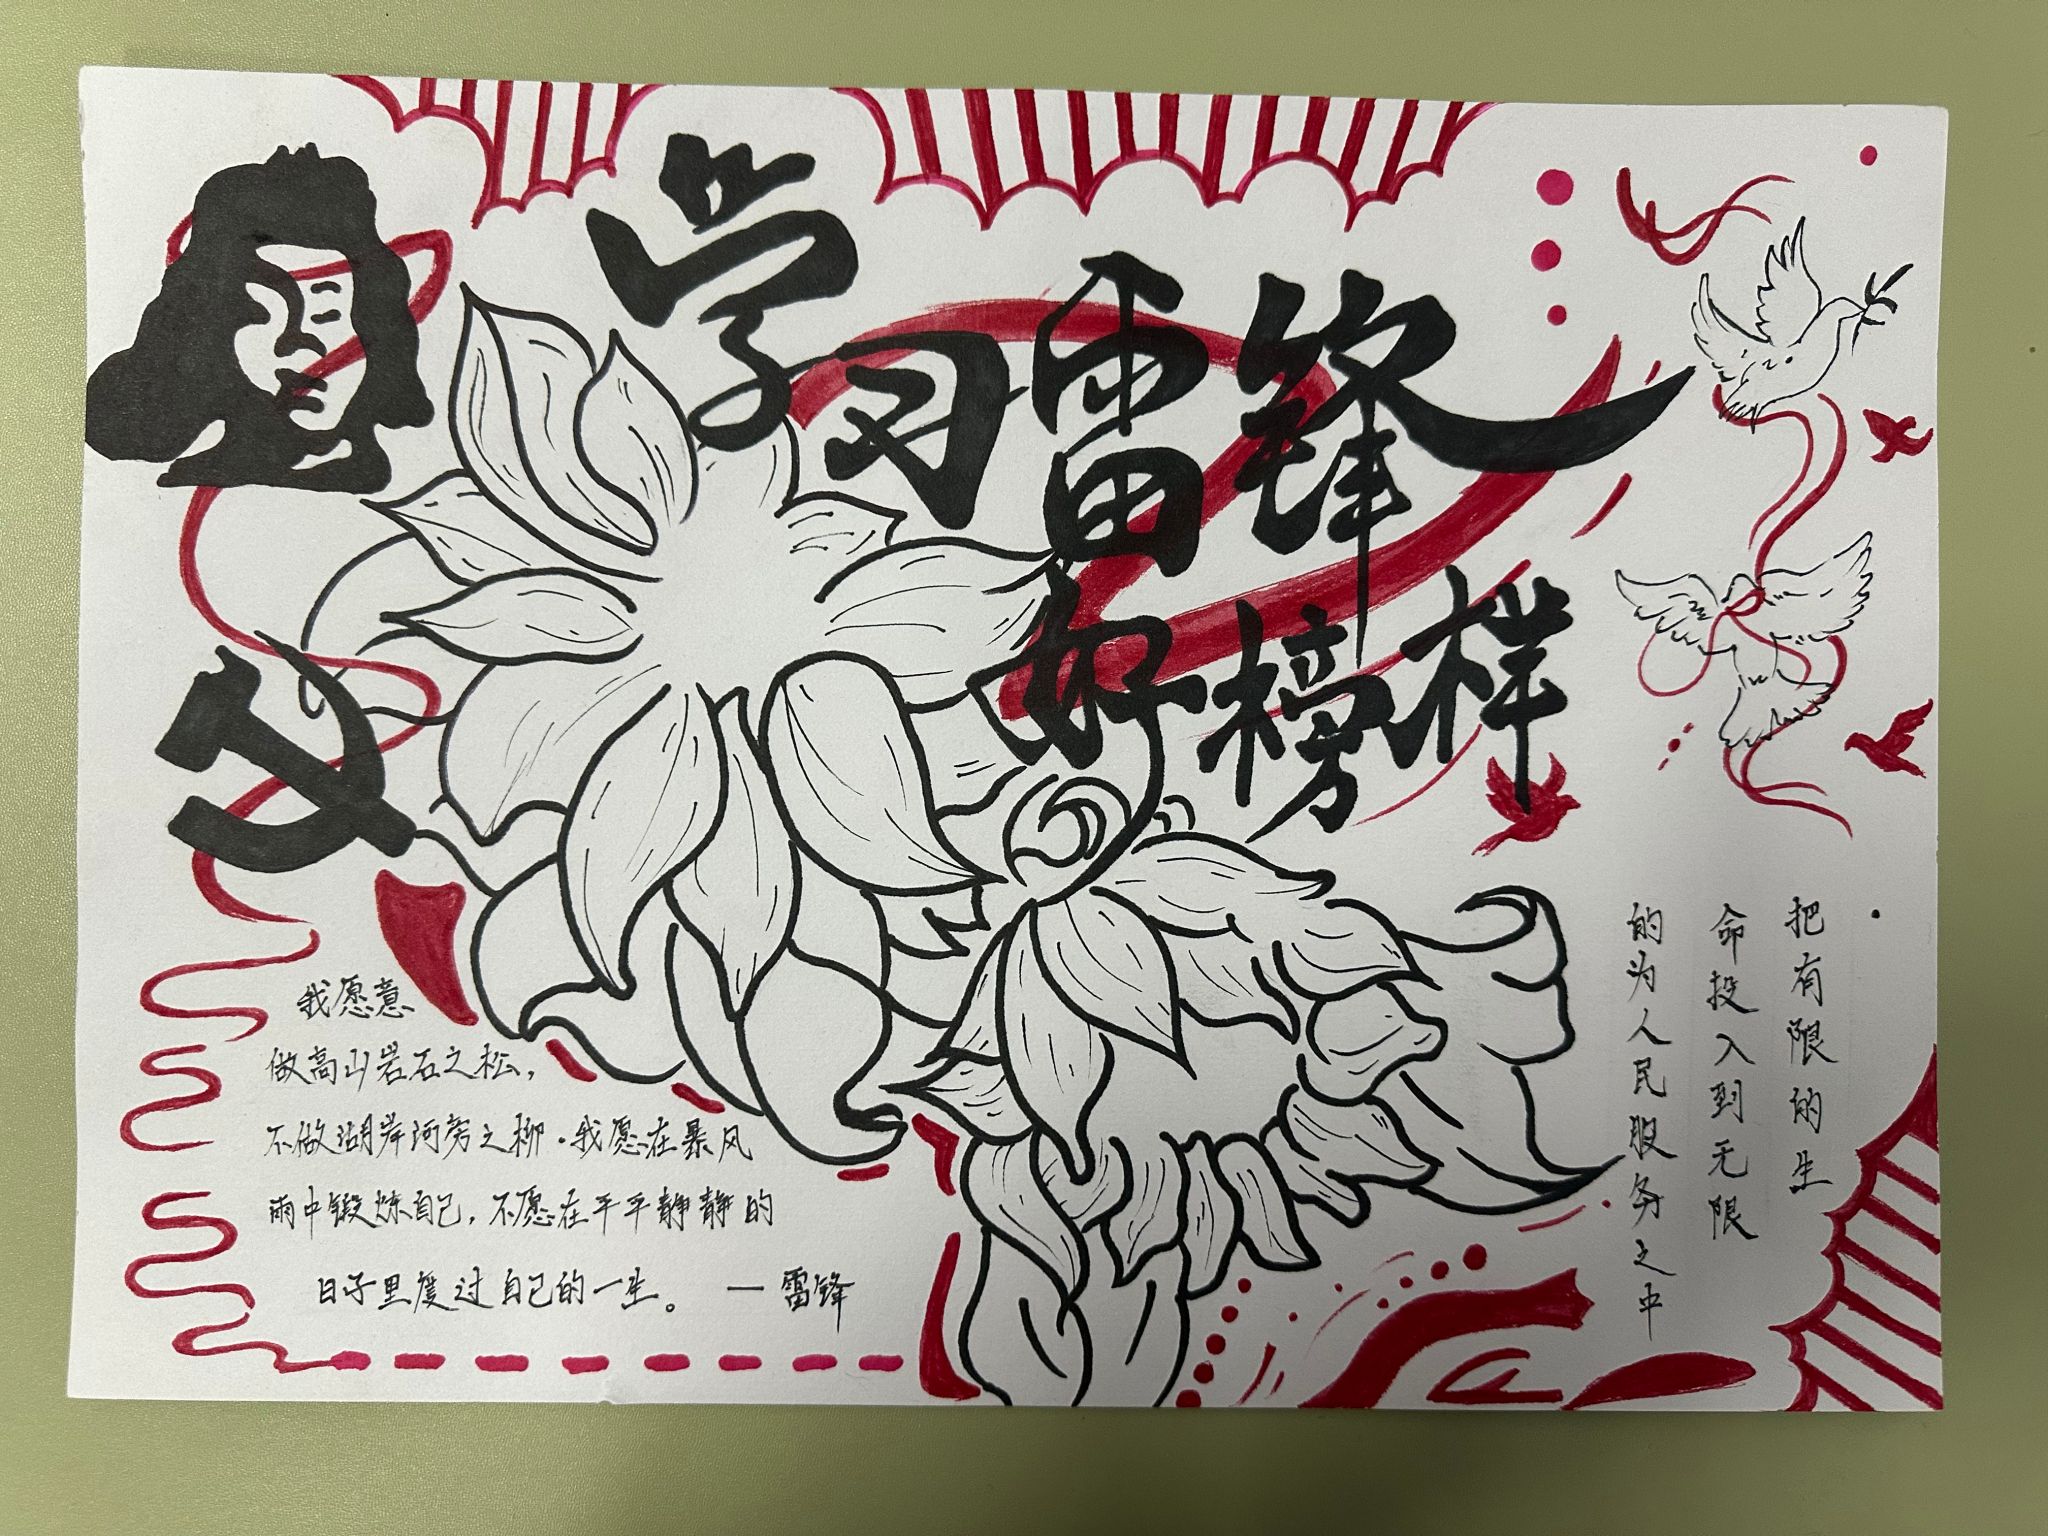 学习雷锋
好榜样
我愿意
做高山岩石之松，
不做湖岸河旁之柳.我愿在暴风
雨中锻炼自己，不愿在平平静静的
日子里度过自己的一生。 一雷锋
把有限的生
命投入到无限
的为人民服务之中